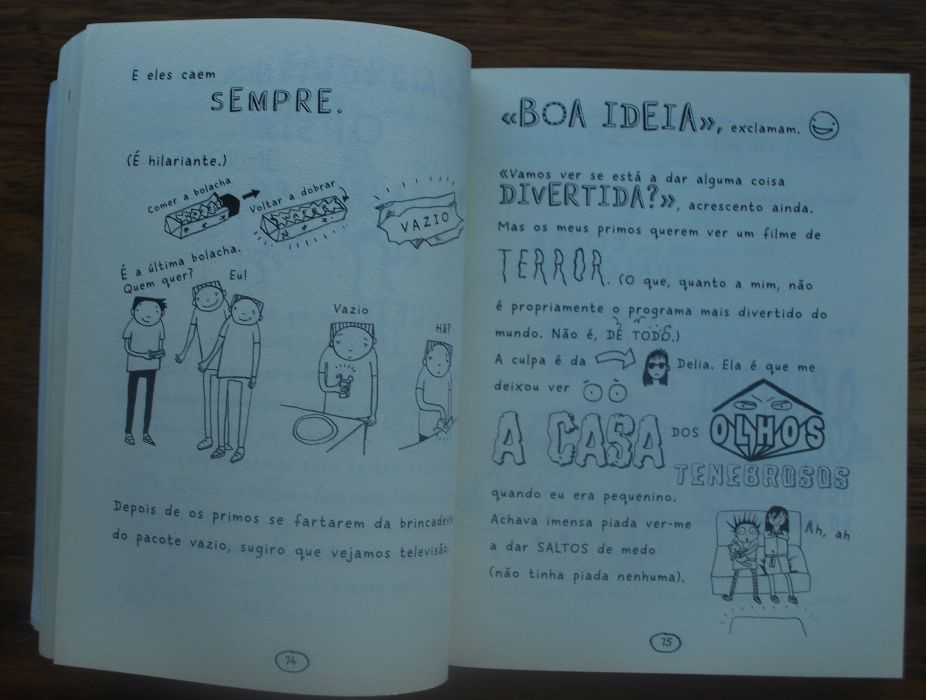 E eles caem
SEMPRE.
(É hilariante.)
Comer a bolacha
Voltar a dobrar
VAZIO
É a última bolacha.
Quem quer?
Eu!
Vazio
Hã?
Depois de os primos se fartarem da brincadeira
do pacote vazio, sugiro que vejamos televisão.
74
«BOA IDEIA», exclamam.
«Vamos ver se está a dar alguma coisa
DIVERTIDA?», acrescento ainda.
Mas os meus primos querem ver um filme de
TERROR. (O que, quanto a mim, não
é propriamente o programa mais divertido do
mundo. Não é, DE TODO.)
A culpa é da Delia. Ela é que me
deixou ver
A CASA DOS OLHOS
TENEBROSOS
quando eu era pequenino.
Achava imensa piada ver-me
a dar SALTOS de medo
(não tinha piada nenhuma).
Ah, ah
75